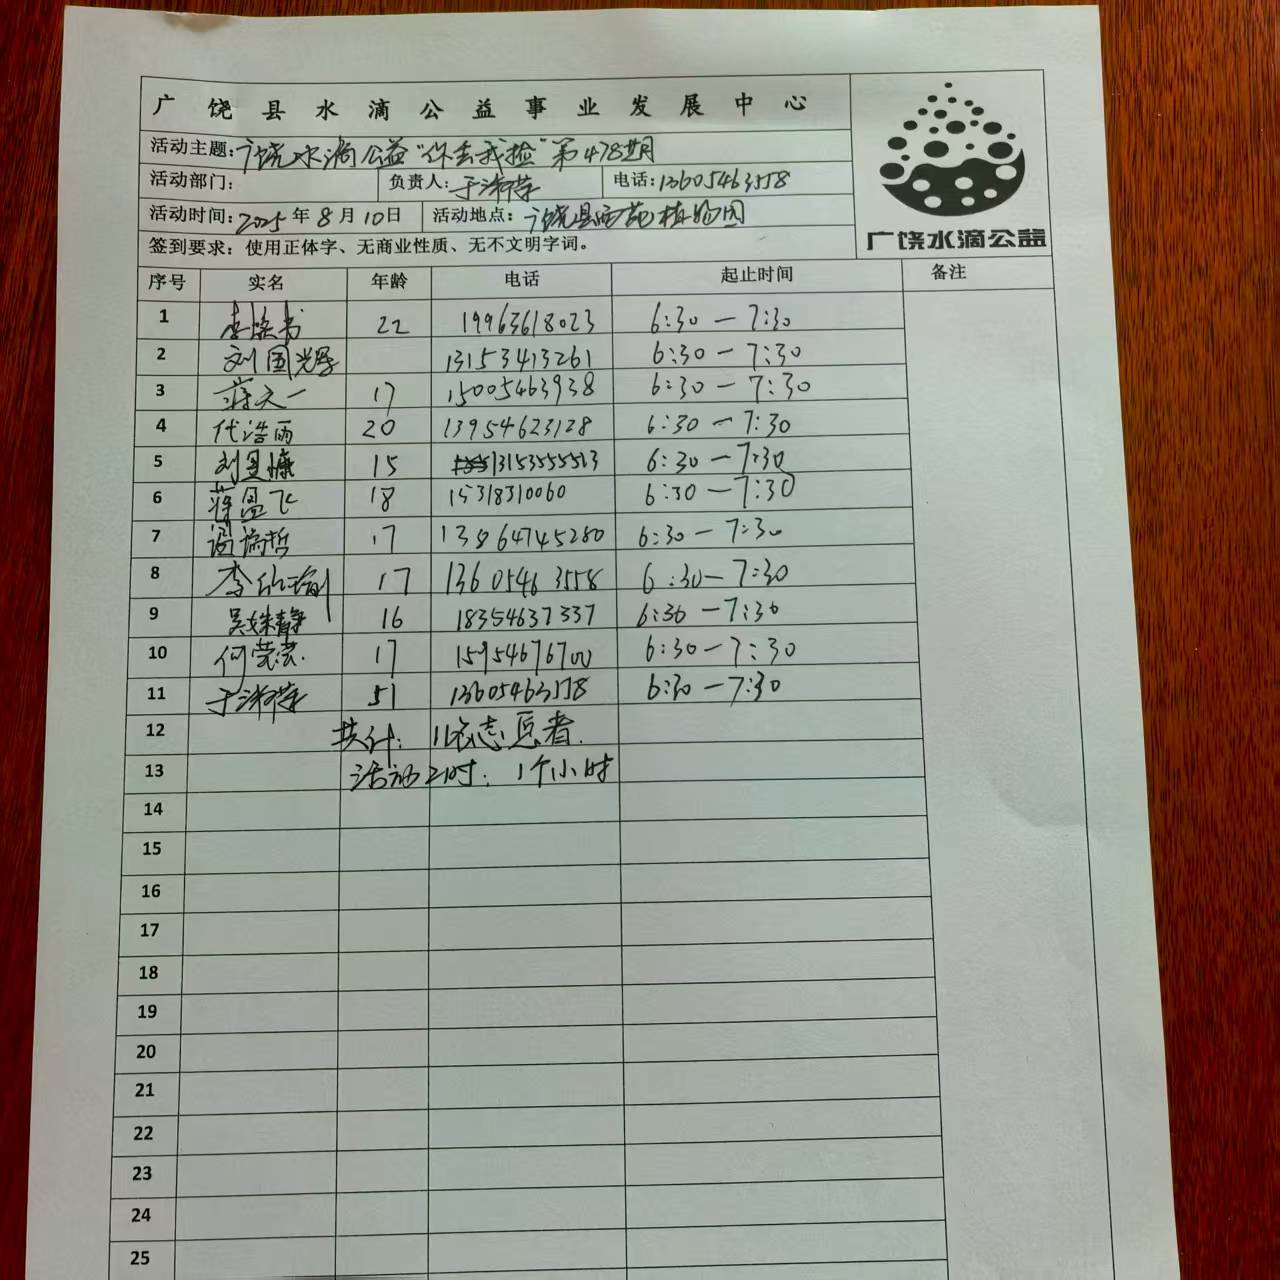 广饶县水滴公益事业发展中心
活动主题:广饶水滴公益"你丢我捡"第478期
活动部门: 负责人:于沛荣 电话:13605463558
活动时间:2025年8月10日 活动地点:广饶县西苑植物园
签到要求:使用正体字、无商业性质、无不文明字词。
广饶水滴公益
序号 实名 年龄 电话 起止时间 备注
1 李焕书 22 19963618023 6:30—7:30
2 刘国光 13153413261 6:30—7:30
3 蒋天一 17 15005463938 6:30—7:30
4 代浩雨 20 13954623128 6:30—7:30
5 刘昱慷 15 13153555513 6:30—7:30
6 蒋盈飞 18 15318310060 6:30—7:30
7 17 13864745280 6:30—7:30
8 李欣瑜 17 13605463558 6:30—7:30
9 吴姝静 16 18354637337 6:30—7:30
10 何莹莹 17 15954676700 6:30—7:30
11 于沛荣 51 13605463558 6:30—7:30
12 共计:11名志愿者.
13 活动21时:1个小时
14
15
16
17
18
19
20
21
22
23
24
25